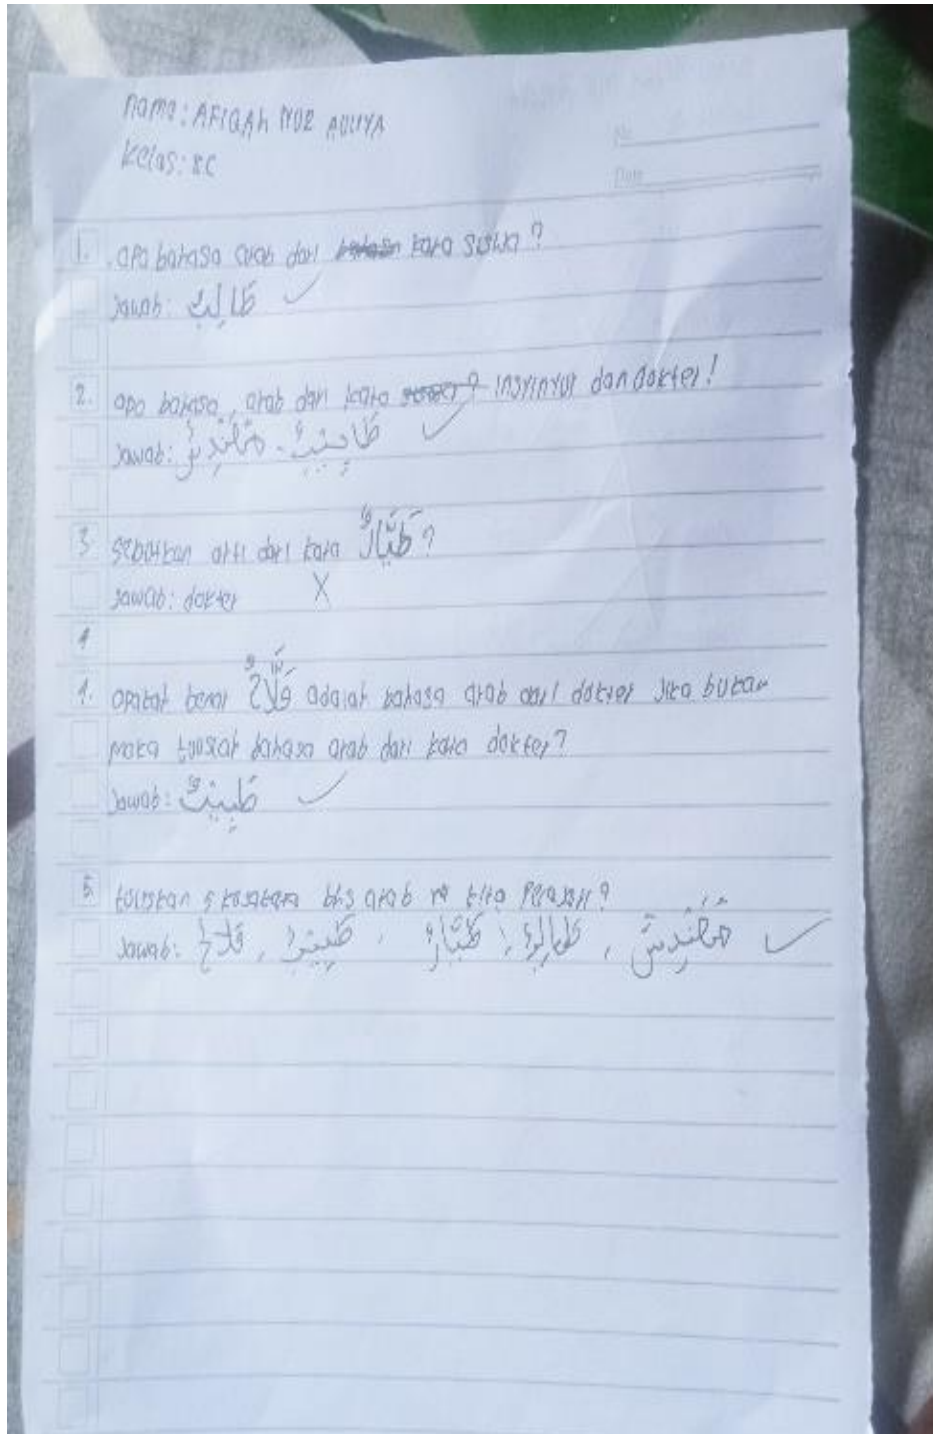 Nama: AFIQAH NUR AULIYA
Kelas: 8C
No
Date
1. apa bahasa arab dari kata siswa?
Jawab: طَالِبٌ ✓
2. apa bahasa, arab dari kata insyinyur dan dokter!
Jawab: طَابِيبٌ - مُهَنْدِسٌ ✓
3. Sebutkan arti dari kata طَيَّارٌ?
Jawab: dokter X
4. apakah benar فَلَّاحٌ adalah bahasa arab dari dokter jika bukan
maka tulislah bahasa arab dari kata dokter?
Jawab: طَبِيبٌ ✓
5 tuliskan 5 kosakata bhs arab yg kita Pelajari?
Jawab: فَلاحٌ , طَبِيبٌ , طَيَّارٌ , طَالِبٌ , مُهَنْدِسٌ ✓